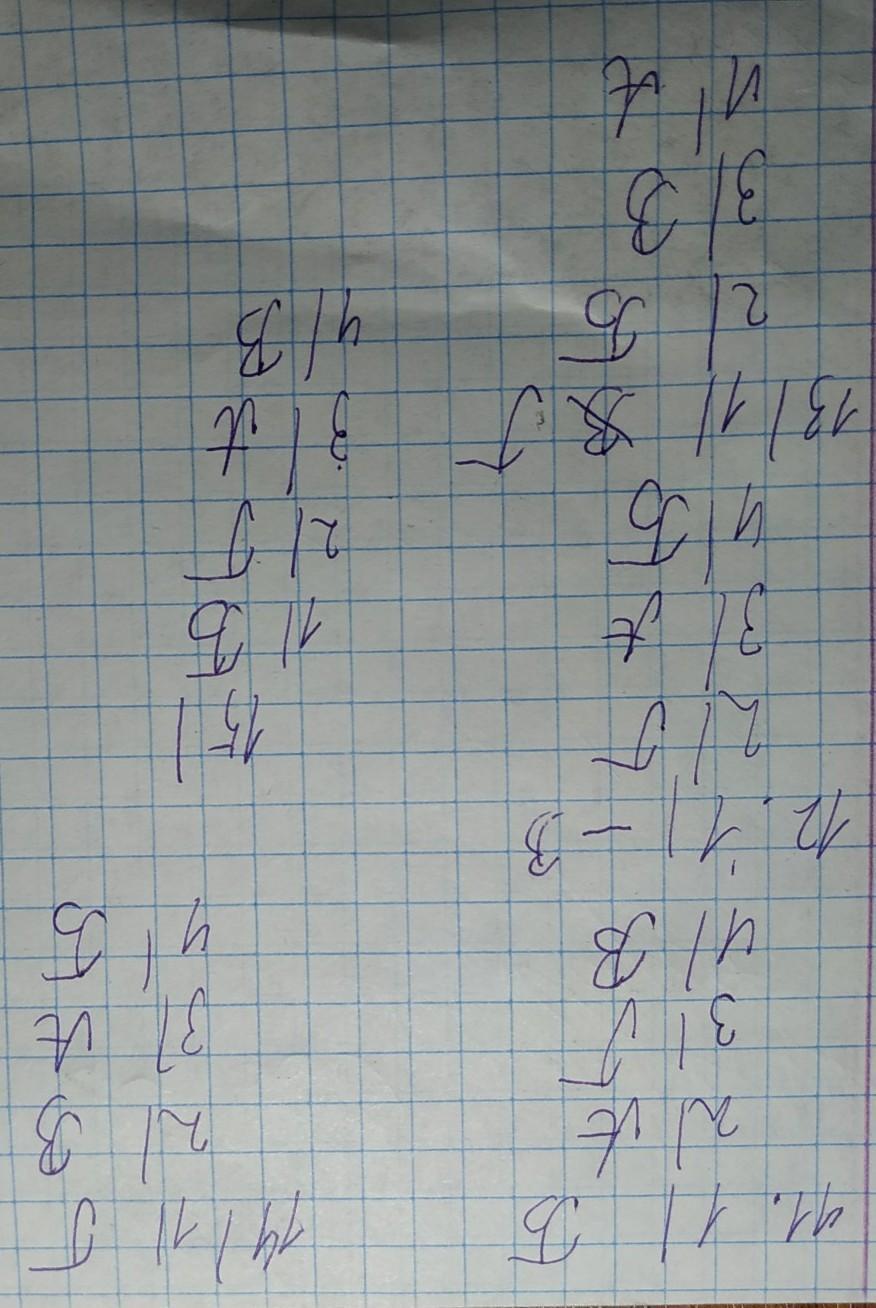 11. 1) Б
2) А
3) Г
4) В
12. 1) – В
2) Г
3) А
4) Б
13) 1) Г
2) Б
3) В
4) А
14) 1) Г
2) В
3) А
4) Б
15)
1) Б
2) Г
3) А
4) В